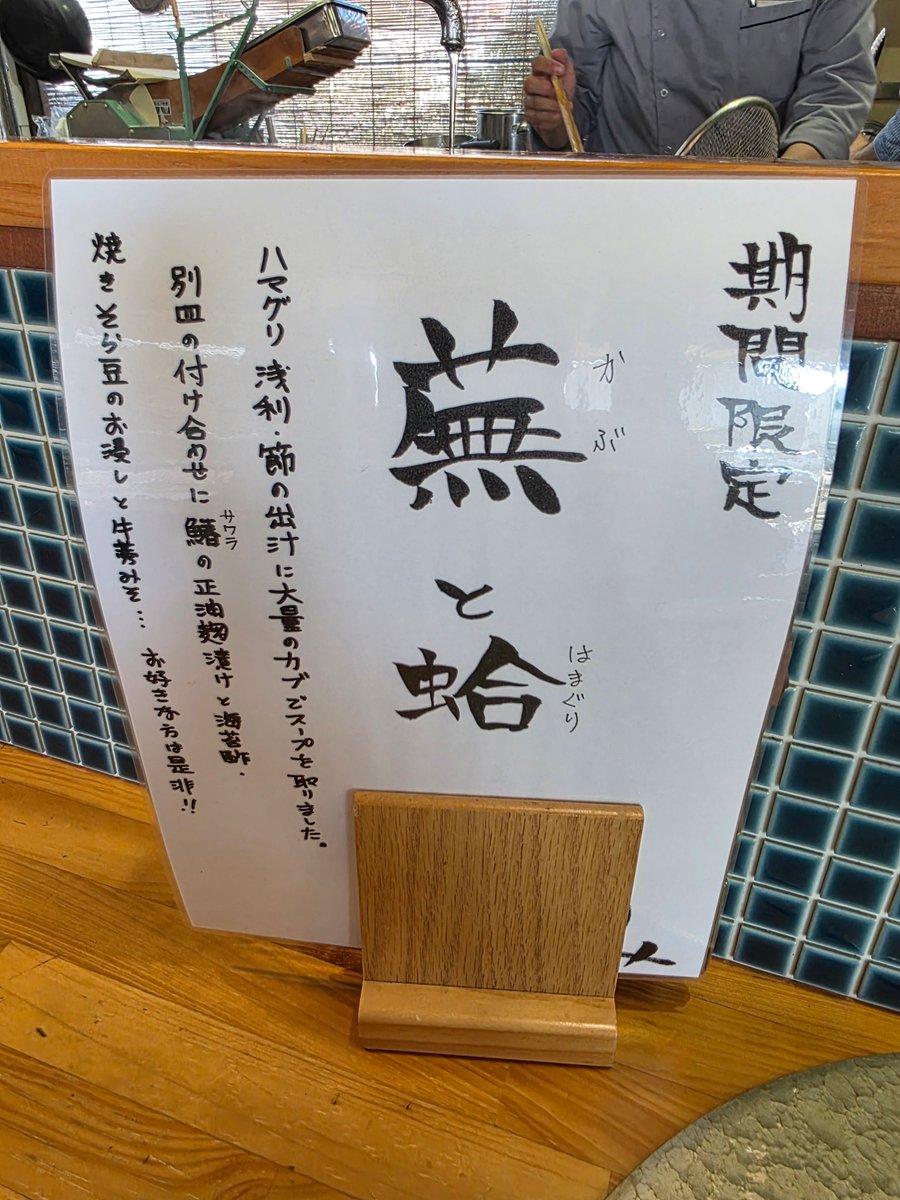 期間限定
蕪と蛤
かぶ
はまぐり
ハマグリ 浅利・節の出汁に大量のカブでスープを取りました。
別皿の付け合わせに鰆の正油麹漬けと海苔酢.
サワラ
焼きそら豆のお浸しと牛蒡みそ… お好きな方は是非!!